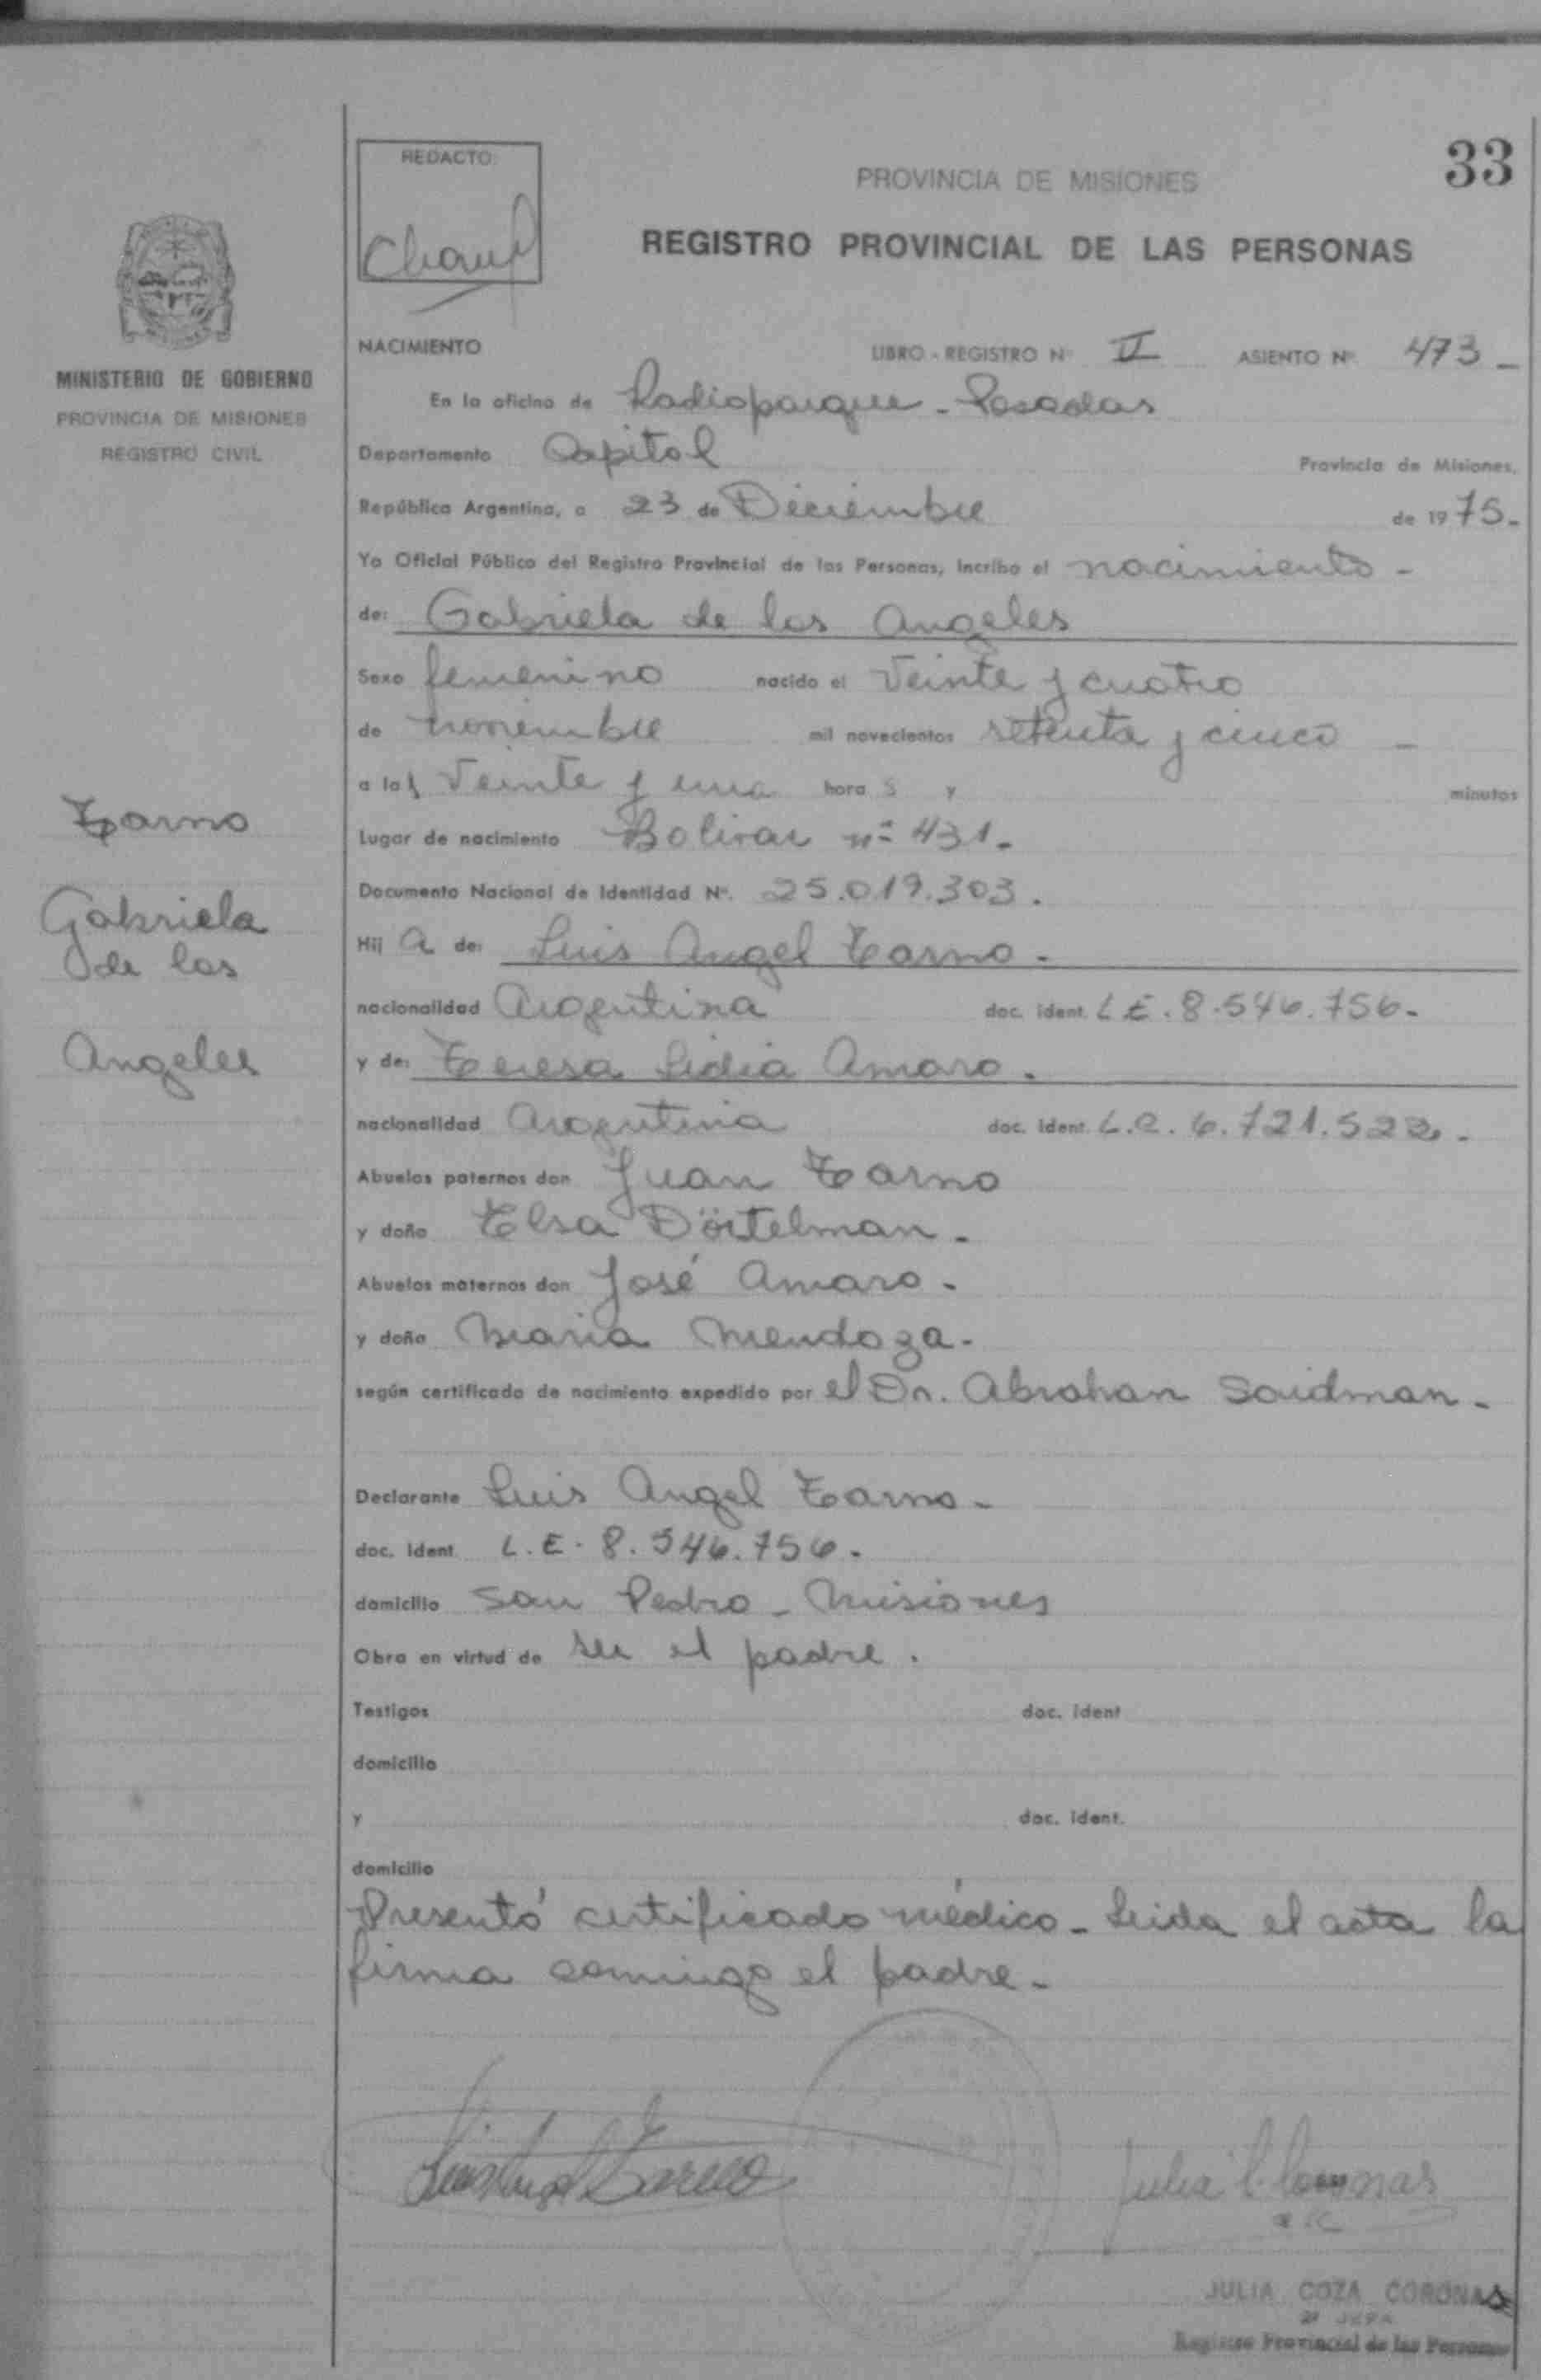 REDACTO:
33
PROVINCIA DE MISIONES
REGISTRO PROVINCIAL DE LAS PERSONAS
MINISTERIO DE GOBIERNO
PROVINCIA DE MISIONES
REGISTRO CIVIL
NACIMIENTO LIBRO - REGISTRO Nº II ASIENTO Nº 473 -
En la oficina de Radioparque - Posadas
Departamento Capital Provincia de Misiones,
República Argentina, a 23 de Diciembre de 1975.-
Yo Oficial Público del Registro Provincial de las Personas, incribo el nacimiento -
de: Gabriela de los Angeles
Sexo femenino nacido el Veinte y cuatro
de noviembre mil novecientos setenta y cinco -
a las Veinte y una hora s y minutos
Lugar de nacimiento Bolivar nº 431.-
Documento Nacional de Identidad Nº. 25.019.303.
Hij a de: Luis Angel Tarno -
nacionalidad Argentina doc. ident. L.E. 8.546.756.-
y de: Teresa Lidia Amaro.
nacionalidad Argentina doc. ident. L.C. 6.721.522.-
Abuelos paternos don Juan Tarno
y doña Elsa Dörtelman -
Abuelos maternos don José Amaro -
y doña Maria Mendoza -
según certificado de nacimiento expedido por el Dr. Abrahan Saidman -
Declarante Luis Angel Tarno -
doc. ident. L.E. 8.546.756.
domicilio San Pedro - Misiones
Obra en virtud de ser el padre.
Testigos doc. ident
domicilio
y doc. ident.
domicilio
Presentó certificado médico - Leida el acta la
firma conmigo el padre -
Tarno
Gabriela
de los
Angeles
JULIA COZA CORONAS
Registro Provincial de las Personas